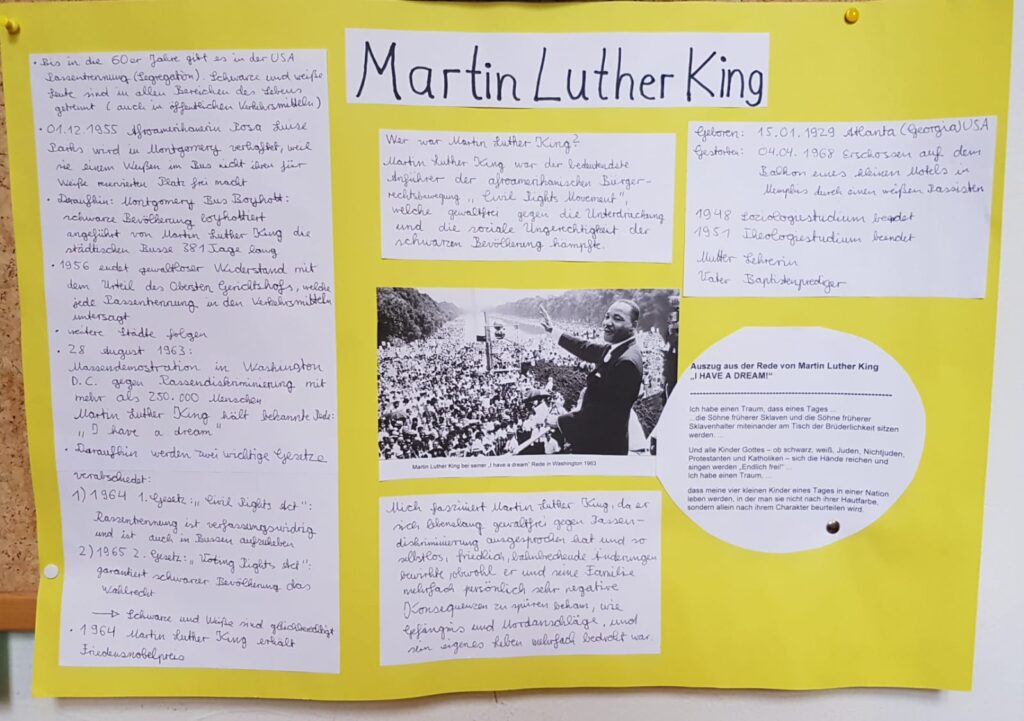 Martin Luther King
• Bis in die 60er Jahre gibt es in der USA
Rassentrennung (Segregation). Schwarze und weiße
Leute sind in allen Bereichen des Lebens
getrennt (auch in öffentlichen Verkehrsmitteln)
• 01.12.1955 Afroamerikanerin Rosa Luise
Parks wird in Montgomery verhaftet, weil
sie einem Weißen im Bus nicht ihren für
Weiße reservierten Platz frei macht
• Daraufhin: Montgomery Bus Boykott:
schwarze Bevölkerung boykottiert
angeführt von Martin Luther King die
städtischen Busse 381 Tage lang
• 1956 endet gewaltloser Widerstand mit
dem Urteil des Obersten Gerichtshofs, welches
jede Rassentrennung in den Verkehrsmitteln
untersagt
• weitere Städte folgen
• 28 August 1963:
Massendemostration in Washington
D.C. gegen Rassendiskriminierung mit
mehr als 250.000 Menschen
Martin Luther King hält bekannte Rede:
„I have a dream"
• Daraufhin werden zwei wichtige Gesetze
verabschiedet:
1) 1964 1. Gesetz: „Civil Rights Act":
Rassentrennung ist verfassungswidrig
und ist auch in Bussen aufzuheben
2) 1965 2. Gesetz: „Voting Rights Act":
garantiert schwarzer Bevölkerung das
Wahlrecht
→ Schwarze und Weiße sind gleichberechtigt
• 1964 Martin Luther King erhält
Friedensnobelpreis
Wer war Martin Luther King?
Martin Luther King war der bedeutendste
Anführer der afroamerikanischen Bürger-
rechtsbewegung „Civil Rights Movement",
welche gewaltfrei gegen die Unterdrückung
und die soziale Ungerechtigkeit der
schwarzen Bevölkerung kämpfte.
Martin Luther King bei seiner „I have a dream" Rede in Washington 1963
Mich fasziniert Martin Luther King, da er
sich lebenslang gewaltfrei gegen Rassen-
diskriminierung ausgesprochen hat und so
selbstlos, friedlich, bahnbrechende Änderungen
bewirkte, obwohl er und seine Familie
mehrfach persönlich sehr negative
Konsequenzen zu spüren bekam, wie
Gefängnis und Mordanschläge, und
sein eigenes Leben mehrfach bedroht war.
Geboren: 15.01.1929 Atlanta (Georgia) USA
Gestorben: 04.04.1968 Erschossen auf dem
Balkon eines kleinen Motels in
Memphis durch einen weißen Rassisten
1948 Soziologiestudium beendet
1951 Theologiestudium beendet
Mutter Lehrerin
Vater Baptistenprediger
Auszug aus der Rede von Martin Luther King
„I HAVE A DREAM!"
Ich habe einen Traum, dass eines Tages ...
...die Söhne früherer Sklaven und die Söhne früherer
Sklavenhalter miteinander am Tisch der Brüderlichkeit sitzen
werden. ...
Und alle Kinder Gottes – ob schwarz, weiß, Juden, Nichtjuden,
Protestanten und Katholiken – sich die Hände reichen und
singen werden „Endlich frei" ...
Ich habe einen Traum, ...
dass meine vier kleinen Kinder eines Tages in einer Nation
leben werden, in der man sie nicht nach ihrer Hautfarbe,
sondern allein nach ihrem Charakter beurteilen wird.